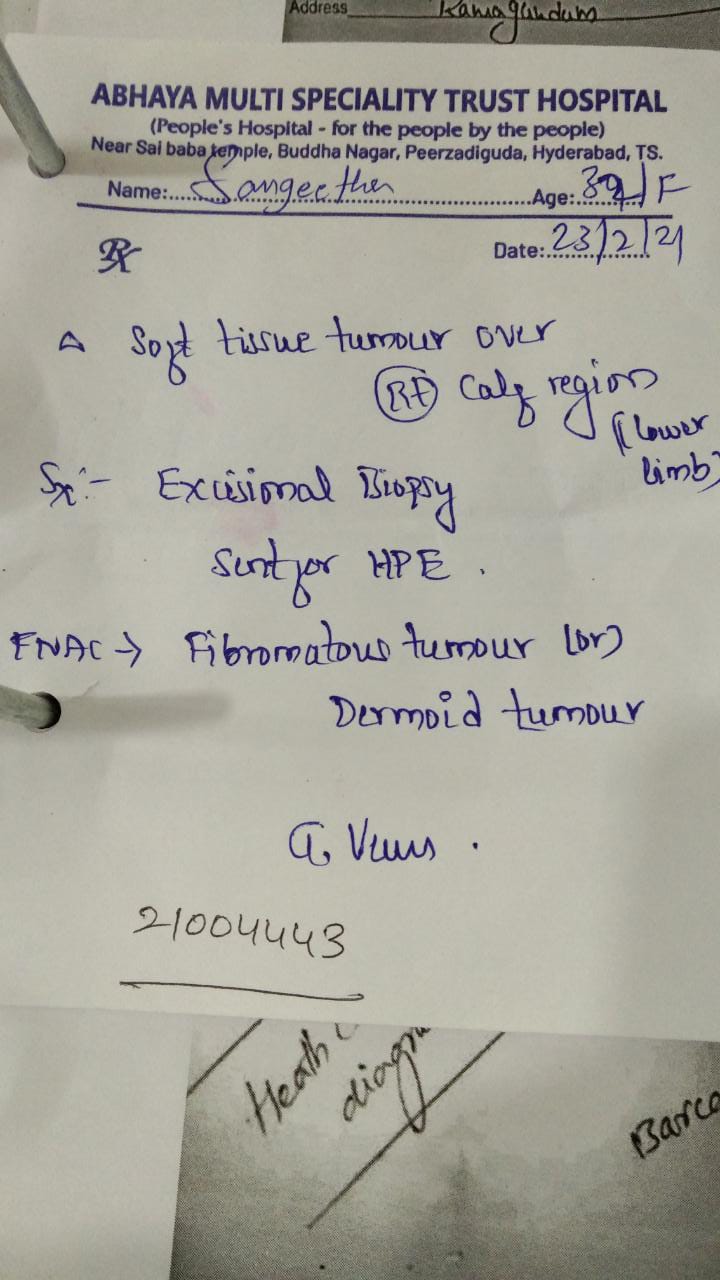 Address
ABHAYA MULTI SPECIALITY TRUST HOSPITAL
(People's Hospital - for the people by the people)
Near Sai baba temple, Buddha Nagar, Peerzadiguda, Hyderabad, TS.
Name: Sangeetha Age: 32/F
Rx Date: 23/2/21
Δ Soft tissue tumour over
Rt Calf region
(lower
limb)
Sx:- Excisional Biopsy
Sent for HPE.
FNAC → Fibromatous tumour (or)
Dermoid tumour
21004443
diagn